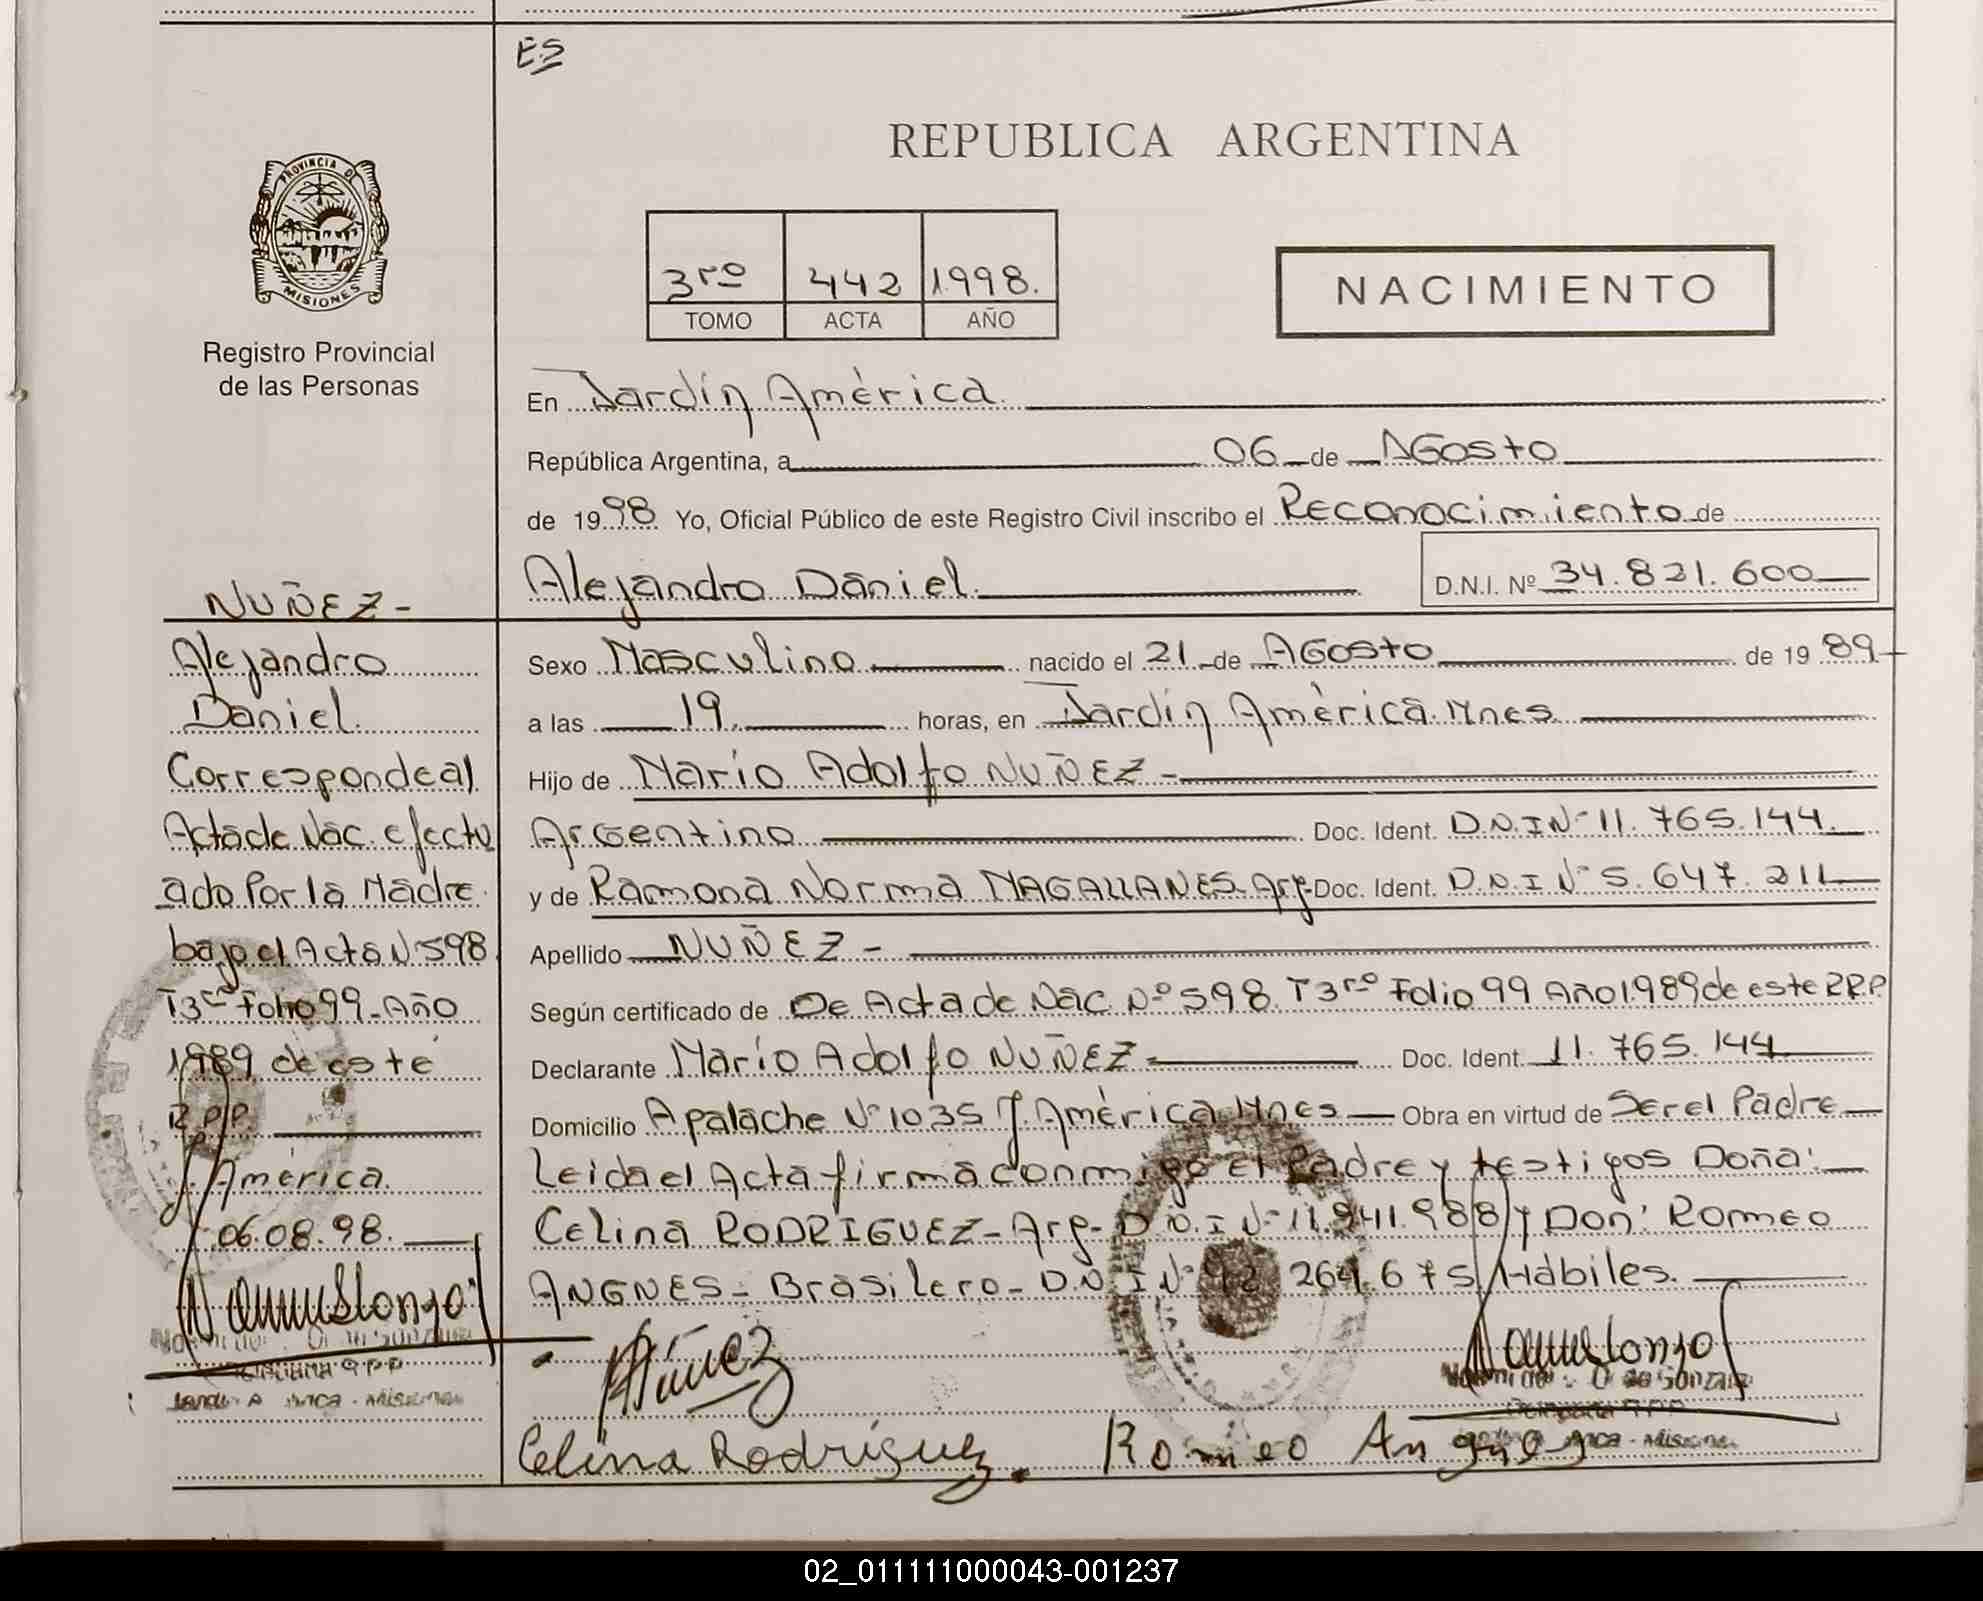 ES
REPUBLICA ARGENTINA
PROVINCIA DE
MISIONES
Registro Provincial
de las Personas
3ro 442 1998.
TOMO ACTA AÑO
NACIMIENTO
En Jardín América.
República Argentina, a 06 de AGosto
de 1998 Yo, Oficial Público de este Registro Civil inscribo el Reconocimiento de
Alejandro Daniel. D.N.I. Nº 34.821.600
Sexo Masculino nacido el 21 de AGosto de 1989
a las 19. horas, en Jardín América. Mnes
Hijo de Mario Adolfo NUÑEZ -
Argentino Doc. Ident. D.N.I Nº 11.765.144.
y de Ramona Norma MAGALLANES. Arg. Doc. Ident. D.N.I Nº 5.647.211
Apellido NUÑEZ -
Según certificado de De Acta de Nac. Nº 598. T3ro Folio 99 Año 1.989 de este R.R.P.
Declarante Mario Adolfo NUÑEZ Doc. Ident. 11.765.144
Domicilio Apalache Nº 1035 J. América Mnes Obra en virtud de Ser el Padre
Leida el Acta firma conmigo el Padre y testigos Doña:
Celina RODRIGUEZ - Arg - D.N.I Nº 11.941.988 y Don: Romeo
ANGNES - Brasilero - D.N.I Nº 92.264.675 Habiles.
NUÑEZ -
Alejandro
Daniel.
Corresponde al
Acta de Nac. efectu
ado Por la Madre
bajo el Acta Nº 598
T3ro Folio 99 - Año
1989 de este
R.P.P.
J. América.
06.08.98.
Nuñez
Celina Rodríguez. Romeo Angnes
02_011111000043-001237